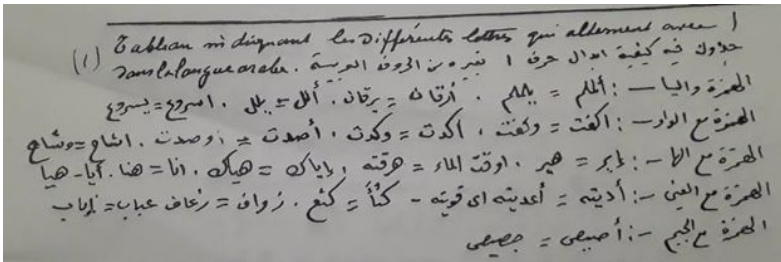 (1) Tableau indiquant les différents lettres qui alternent avec ا
dans la langue arabe. جدول فيه كيفية ابدال حرف ا بغيره من الحروف العربية
الهمزة واليا -: ألملم = يلملم . أرقان = يرقان . ألل = يلل . اسروع = يسروع
الهمزة مع الواو -: اكفت = وكفت ، اكدت = وكدت ، أصدت = اوصدت . اشاح = وشاح
الهمزة مع الها -: إير = هير . ارقت الماء = هرقته . إياك = هياك . انا = هنا . أيا - هيا
الهمزة مع العين -: أديته = أعديته اى قويته - كثأ = كثع . زواف = زعاف عباب = إباب
الهمزة مع الجيم -: أصيص = جصيص